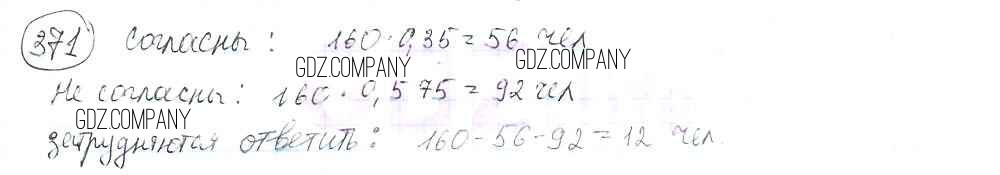 371 согласны: 160 · 0,35 = 56 чел
GDZ.COMPANY
GDZ.COMPANY
не согласны: 160 · 0,575 = 92 чел
GDZ.COMPANY
затрудняются ответить: 160 - 56 - 92 = 12 чел.